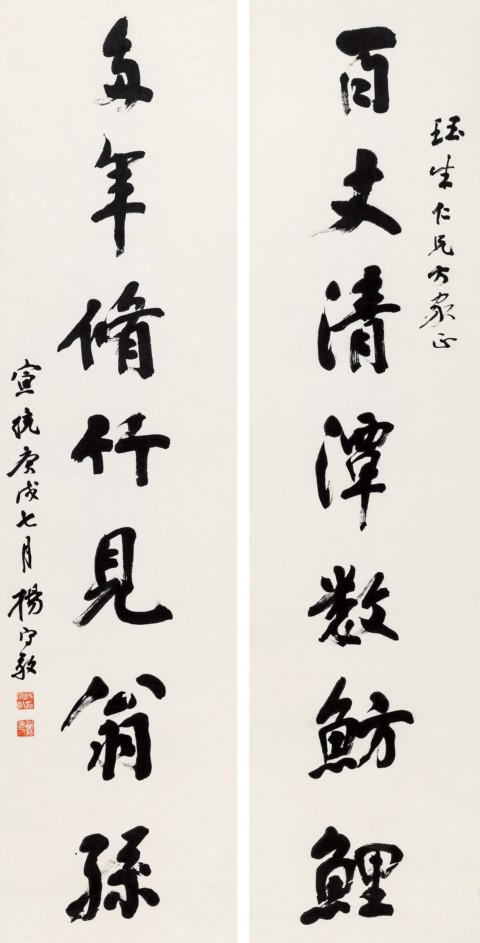 珏生仁兄方家正
百丈清潭数魴鯉
每年脩竹見翁孫
宣統庚戌七月楊守敬